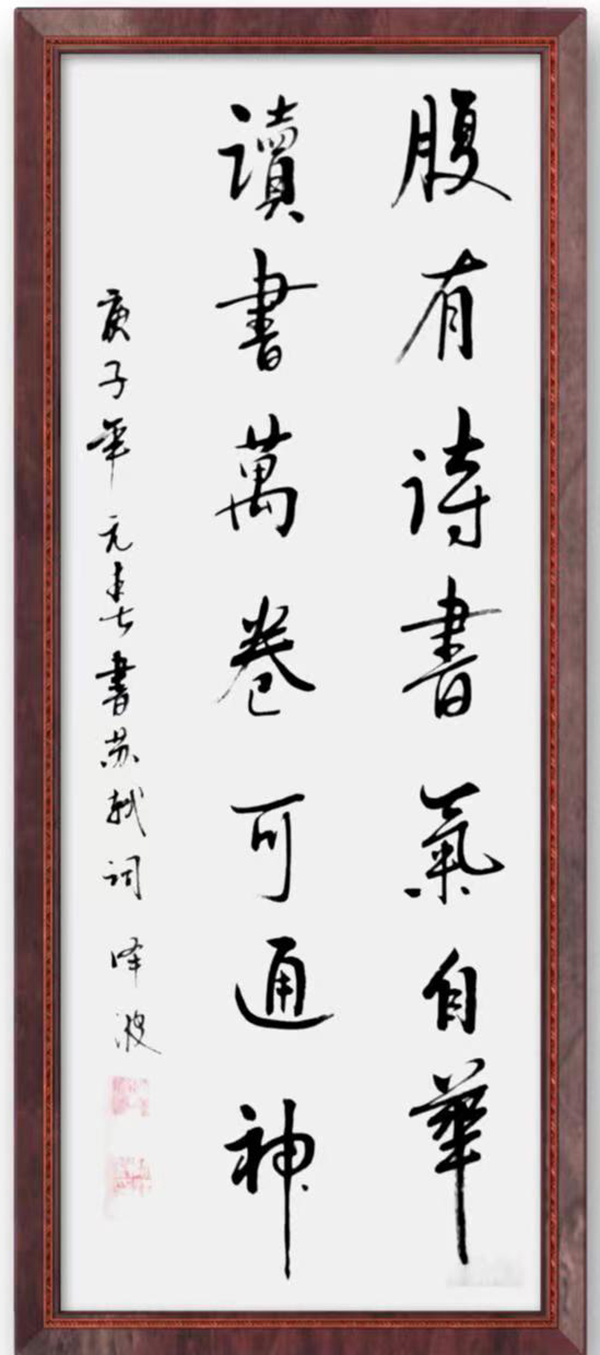 腹有詩書氣自華
讀書萬卷可通神
庚子年元春書苏軾词 泽波